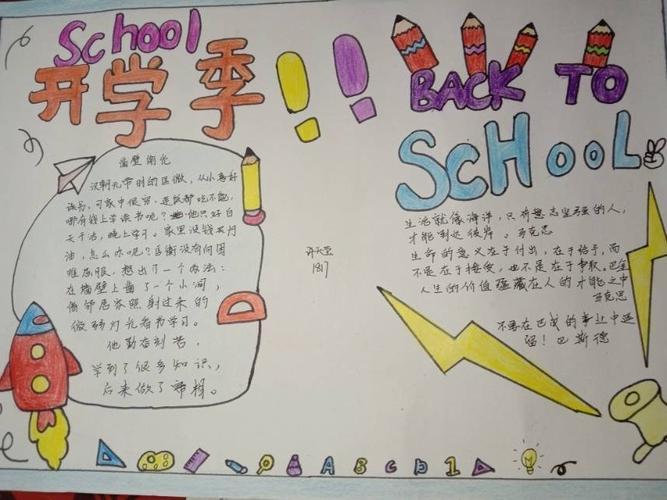 School
开学季!!
BACK TO
SCHOOL
凿壁偷光
汉朝元帝时的匡衡,从小喜好
读书,可家中很穷,连饭都吃不饱,
哪有钱上学读书呢?他只好白
天干活,晚上学习。家里没钱买灯
油,怎么办呢?匡衡没有向困
难屈服,想出了一个办法:
在墙壁上凿了一个小洞,
借邻居家照射过来的
微弱灯光看书学习。
他勤奋刻苦,
学到了很多知识,
后来做了丞相。
187
生活就像海洋,只有意志坚强的人,
才能到达彼岸。马克思
生命的意义在于付出,在于给予,而
不是在于接受,也不是在于争取。巴金
人生的价值蕴藏在人的才能之中
马克思
不要在已成的事业中逗
留!巴斯德
A B C D 1